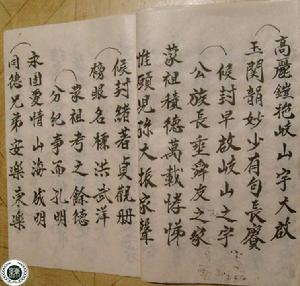 高麗鎧抱岐山字大啟
玉關韻妙少有司長賡
候封早啟岐山之宇
公族長垂舜友之家
蒙祖積德萬載悌
惟願兒孫大振家聲
候封緒著貞觀册
榜眼名標洪武洋
蒙祖考之餘德
分紀事而孔明
永固愛情山海成明
同德兄弟安樂樂